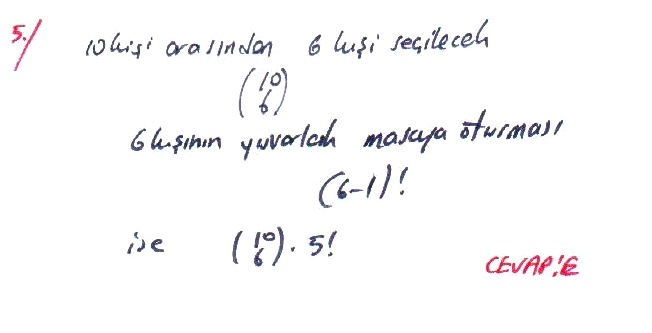 5./ 10 kişi arasından 6 kişi seçilecek
(10 6)
6 kişinin yuvarlak masaya oturması
(6-1)!
ise (10 6) . 5!
CEVAP: E